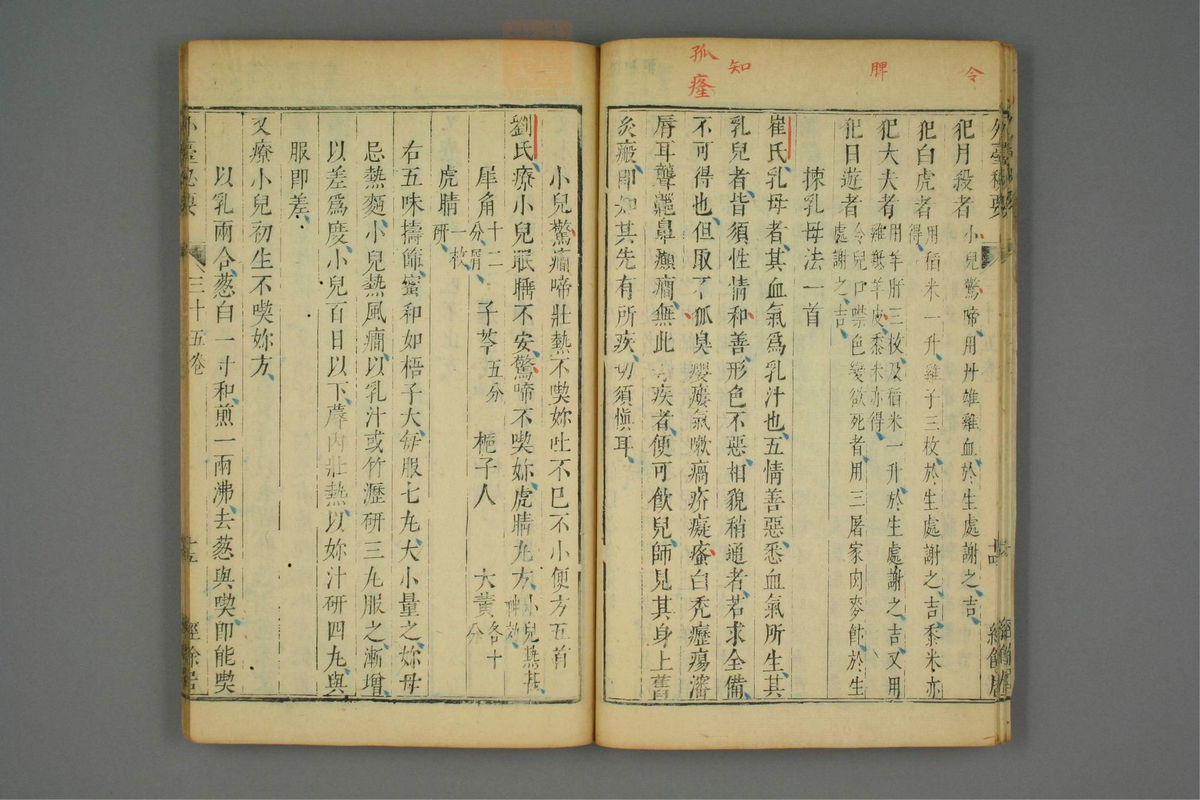 孤
瘞
知
脾
令
外臺秘要
犯月殺者小兒驚啼用丹雄雞血於生處謝之吉
犯白虎者用稻米一升雞子三枚於生處謝之吉黍米亦
得
犯大夫者用羊肝三枚及稻米一升於生處謝之吉又用
雞羝羊皮黍米亦得
犯日遊者令兒口噤色變欲死者用三屠家肉麥飰於生
處謝之吉
揀乳母法一首
崔氏乳母者其血氣為乳汁也五情善惡悉血氣所生其
乳兒者皆須性情和善形色不惡相貌稍通者若求全備
不可得也但取不狐臭癭瘻氣嗽瘑疥癡瘙白禿癧瘍瀋
脣耳聾齆鼻癲癇無此等疾者便可飲兒師見其身上舊
灸瘢即知其先有所疾切須愼耳
小兒驚癇啼壯熱不喫妳吐不已不小便方五首
劉氏療小兒眠瞔不安驚啼不喫妳虎睛丸方小兒無甚
神効
犀角十二
分屑
子芩五分
梔子人
大黃各十
分
虎睛一枚
研
右五味擣篩蜜和如梧子大每服七丸大小量之妳母
忌熱麵小兒熱風癇以乳汁或竹瀝研三丸服之漸增
以差為度小兒百日以下蓐內壯熱以妳汁研四丸與
服即差
又療小兒初生不喫妳方
以乳兩合葱白一寸和煎一兩沸去葱與喫即能喫
外臺秘要
三十五卷
經餘居